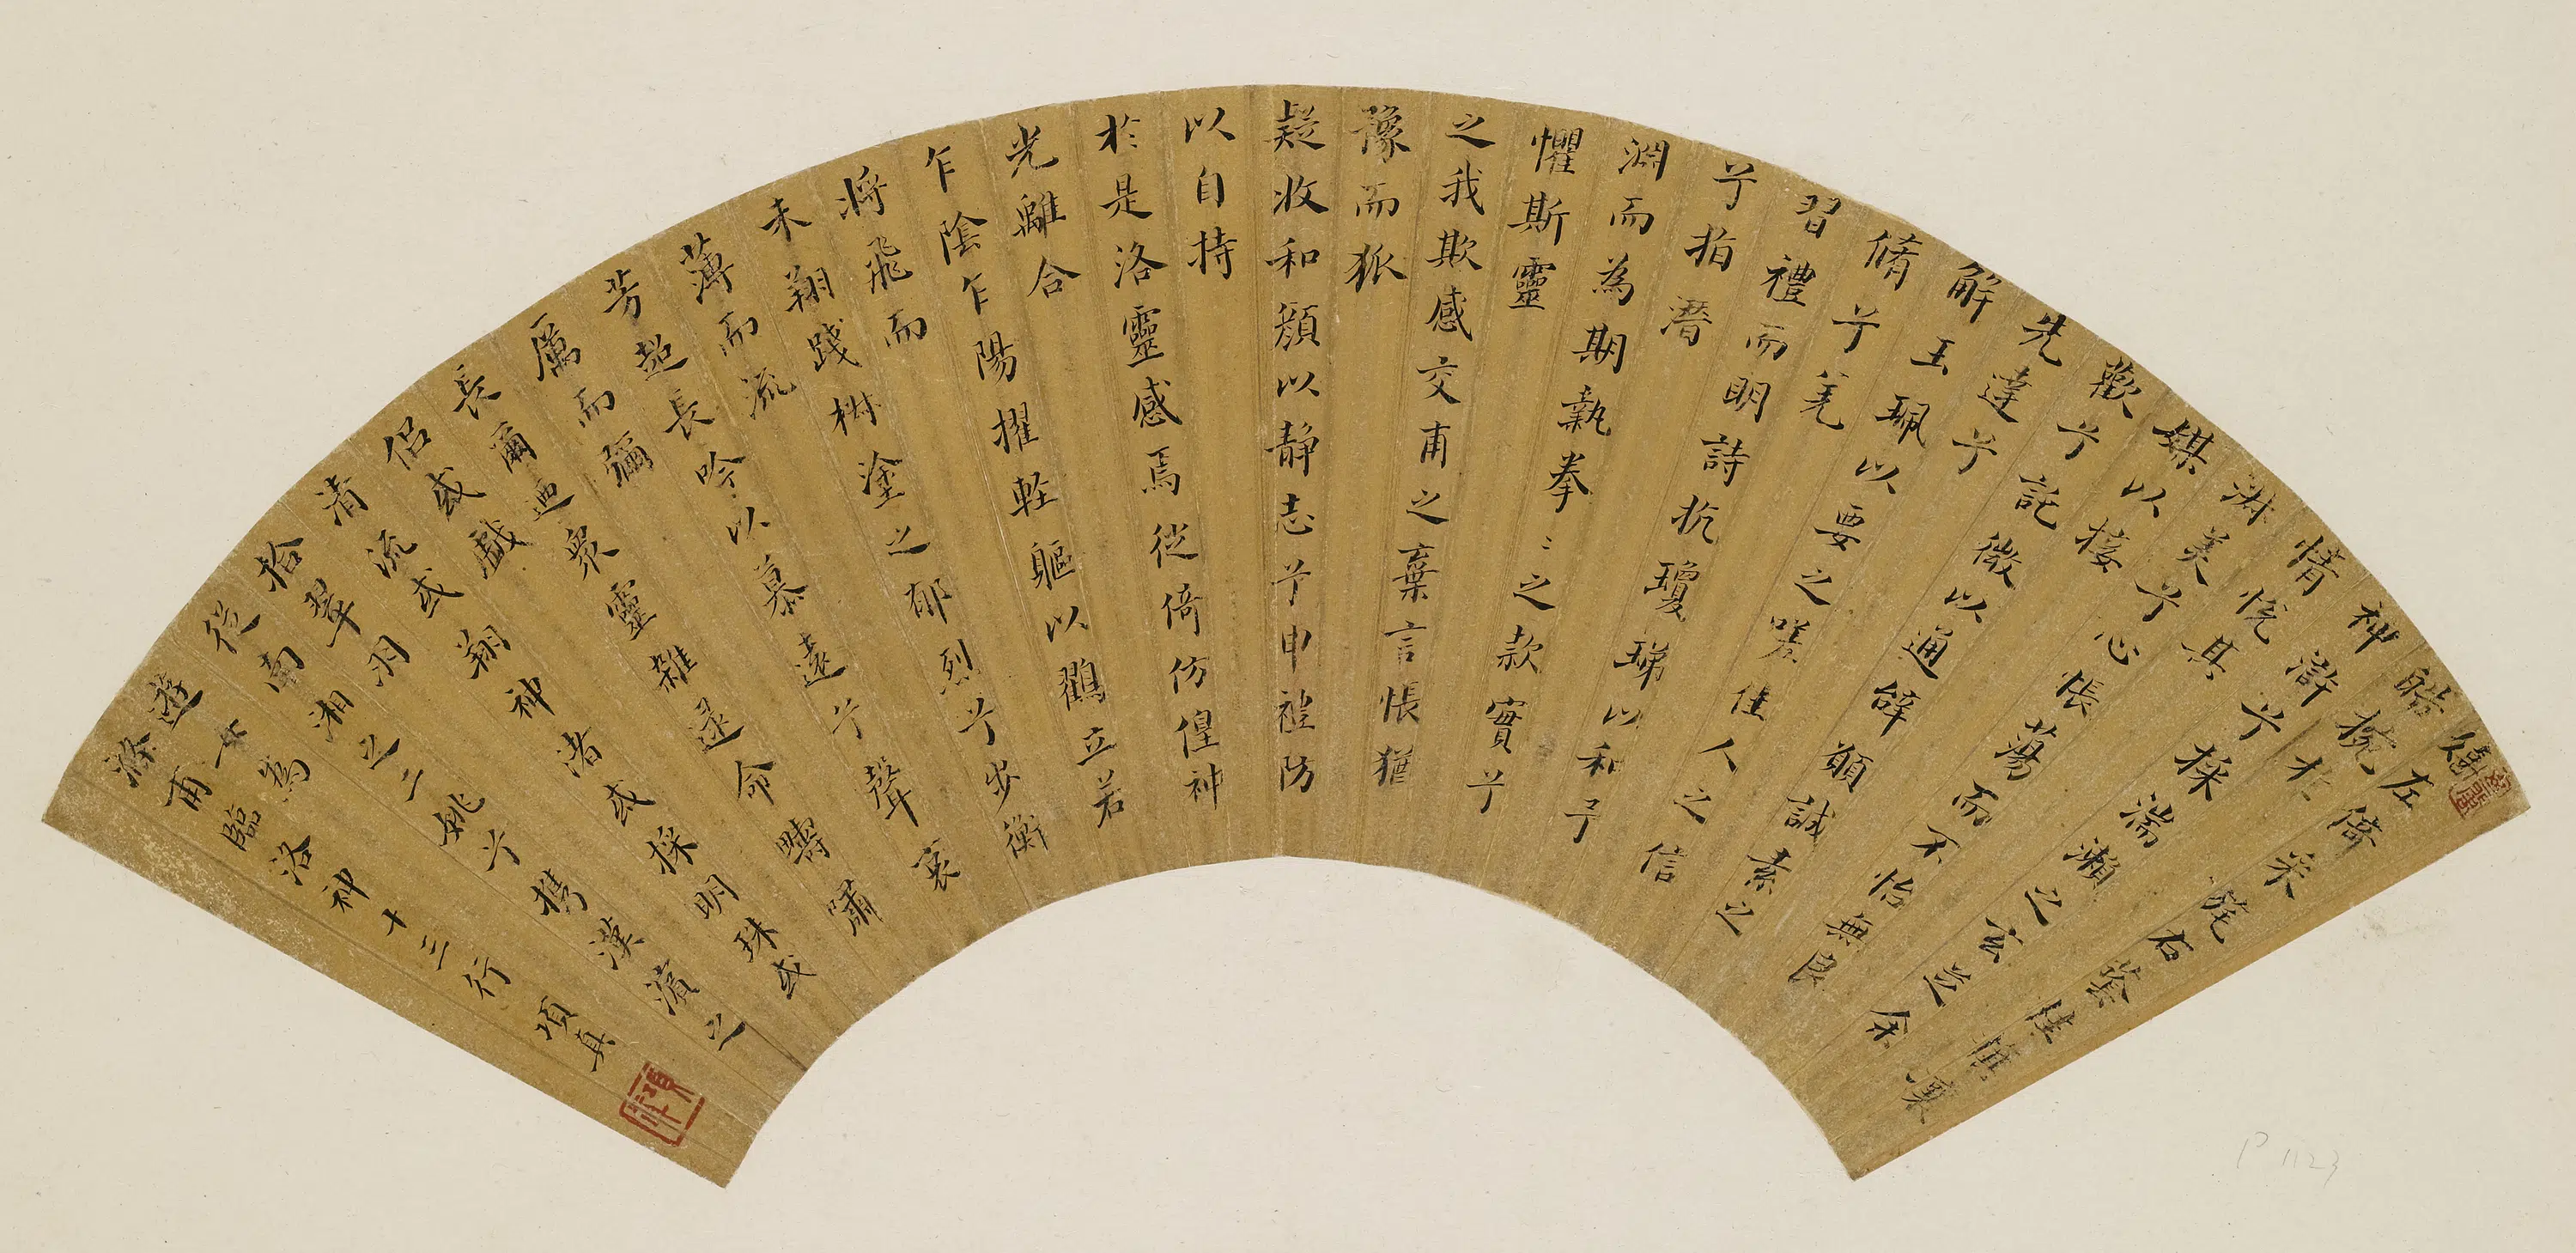 嬉左倚采旄右蔭桂旗攘
皓腕於
神滸兮採湍瀨之玄芝余
情悅其
淋美兮心悵蕩而不怡無良
媒以接
歡兮託微以通辭願誠素之
先達兮
解玉珮以要之嗟佳人之信
脩兮羌
習禮而明詩抗瓊珶以和予
兮指潛
淵而為期執拳〻之款實兮
懼斯靈
之我欺感交甫之棄言悵猶
豫而狐
疑收和顏以静志兮申禮防
以自持
於是洛靈感焉從倚仿偟神
光離合
乍陰乍陽擢軽軀以鸛立若
將飛而
未翔踐椒塗之郁烈兮步衡
薄而流
芳超長吟以慕遠兮聲哀
厲而彌
長爾迺衆靈雜遝命疇嘯
侶或戲
清流或翔神渚或採明珠或
拾翠羽
從南湘之二姚兮攜漢濱之
遊女為
滌甫臨洛神十三行 項真
P 1123